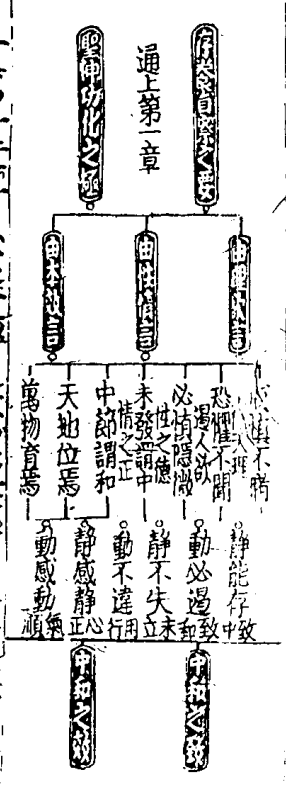 存養省察之要
通上第一章
聖神功化之極
由性情言
戒慎不睹
恐懼不聞
遏人欲
必慎隱微
性之德
未發謂中
情之正
中節謂和
天地位焉
萬物育焉
靜能存
致中
動必遏
致和
靜不失
未立
動不違
用行
靜感靜
心正
動感動
氣順
中和之致
中和之效